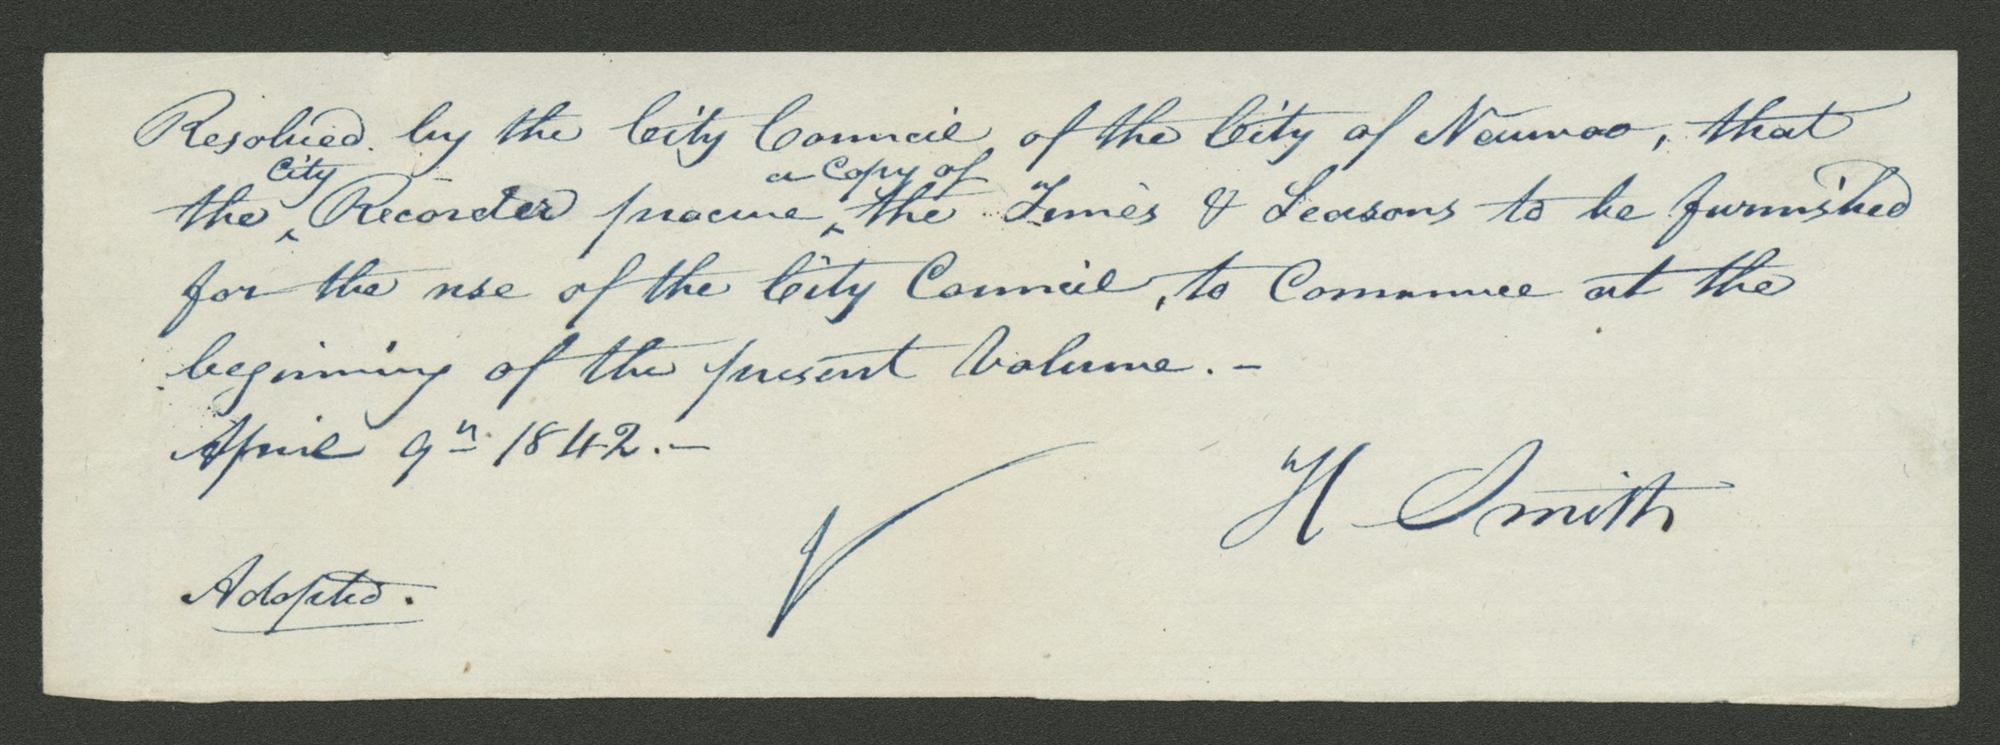 Resolved by the City Council of the City of Nauvoo, that
the ^City Recorder procure ^a Copy of the Times & Seasons to be furnished
for the use of the City Council, to Commence at the
beginning of the present Volume. –
April 9th 1842. –
H Smith
Adopted.